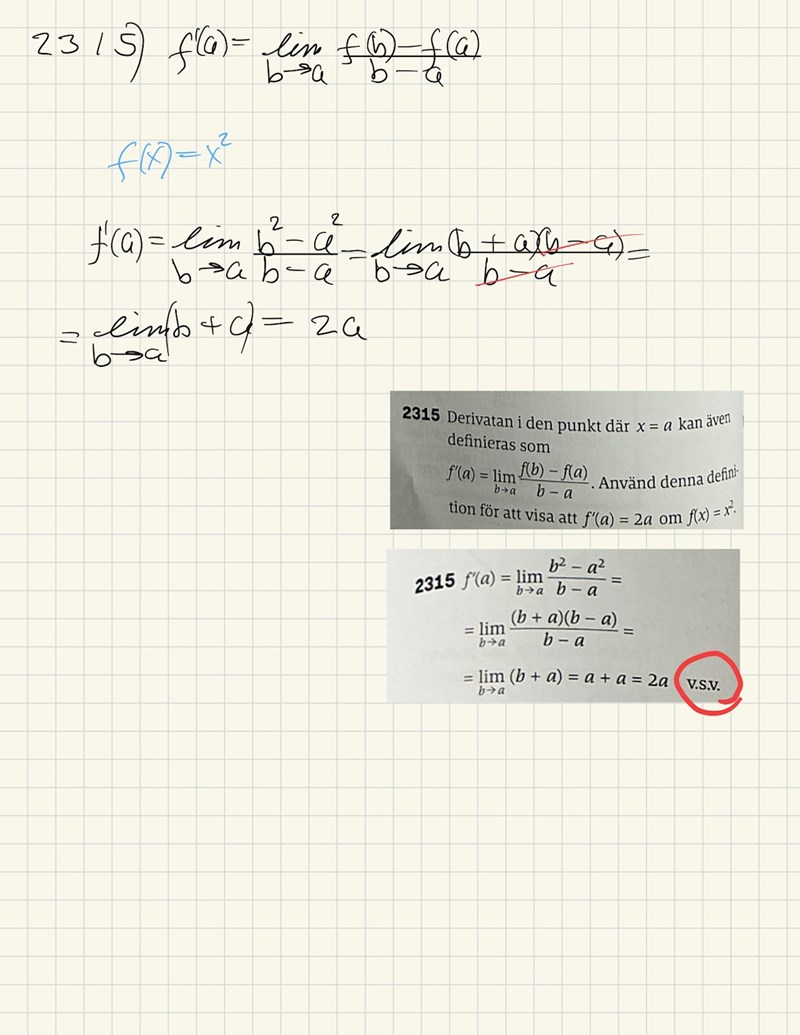 2315) f'(a) = lim b→a f(b)-f(a) / b-a
f(x) = x²
f'(a) = lim b→a b²-a² / b-a = lim b→a (b+a)(b-a) / b-a =
= lim b→a (b+a) = 2a
2315 Derivatan i den punkt där x = a kan även
definieras som
f'(a) = lim b→a f(b) – f(a) / b – a . Använd denna defini-
tion för att visa att f'(a) = 2a om f(x) = x².
2315 f'(a) = lim b→a b² – a² / b – a =
= lim b→a (b + a)(b – a) / b – a =
= lim b→a (b + a) = a + a = 2a V.S.V.